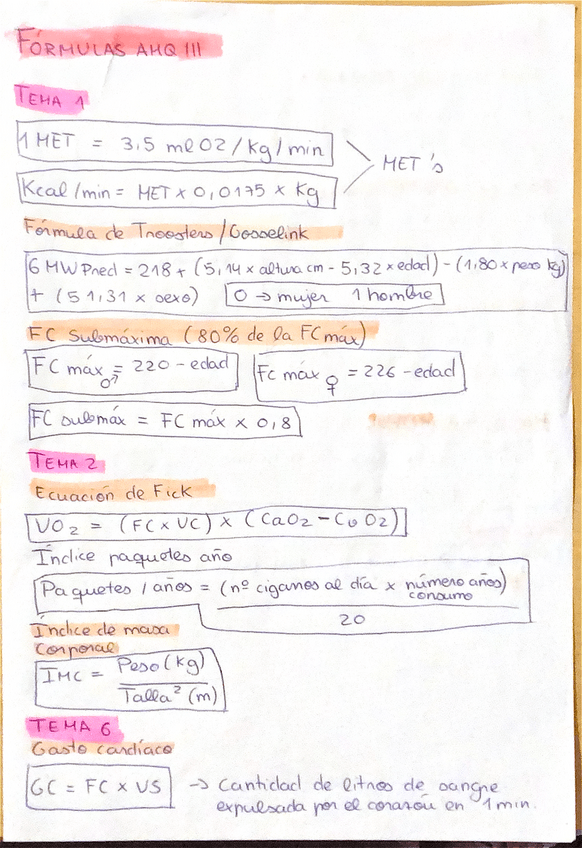 FÓRMULAS AMQ III
TEMA 1
1 MET = 3,5 ml O2/kg/min
MET's
Kcal/min = MET x 0,0175 x Kg
Fórmula de Troosters/Gosselink
6 MWPred = 218 + (5,14 x altura cm - 5,32 x edad) - (1,80 x peso kg)
+ (51,31 x sexo) 0 → mujer 1 hombre
FC Submáxima (80% de la FC máx)
FC máx ♂ = 220 - edad Fc máx ♀ = 226 - edad
FC submáx = FC máx x 0,8
TEMA 2
Ecuación de Fick
VO2 = (FC x VC) x (CaO2 - CvO2)
Índice paquetes año
Paquetes / años = (nº cigarros al día x número años consumo)
20
Índice de masa
corporal
IMC = Peso (kg)
Talla² (m)
TEMA 6
Gasto cardíaco
GC = FC x VS → Cantidad de litros de sangre
expulsada por el corazón en 1 min.